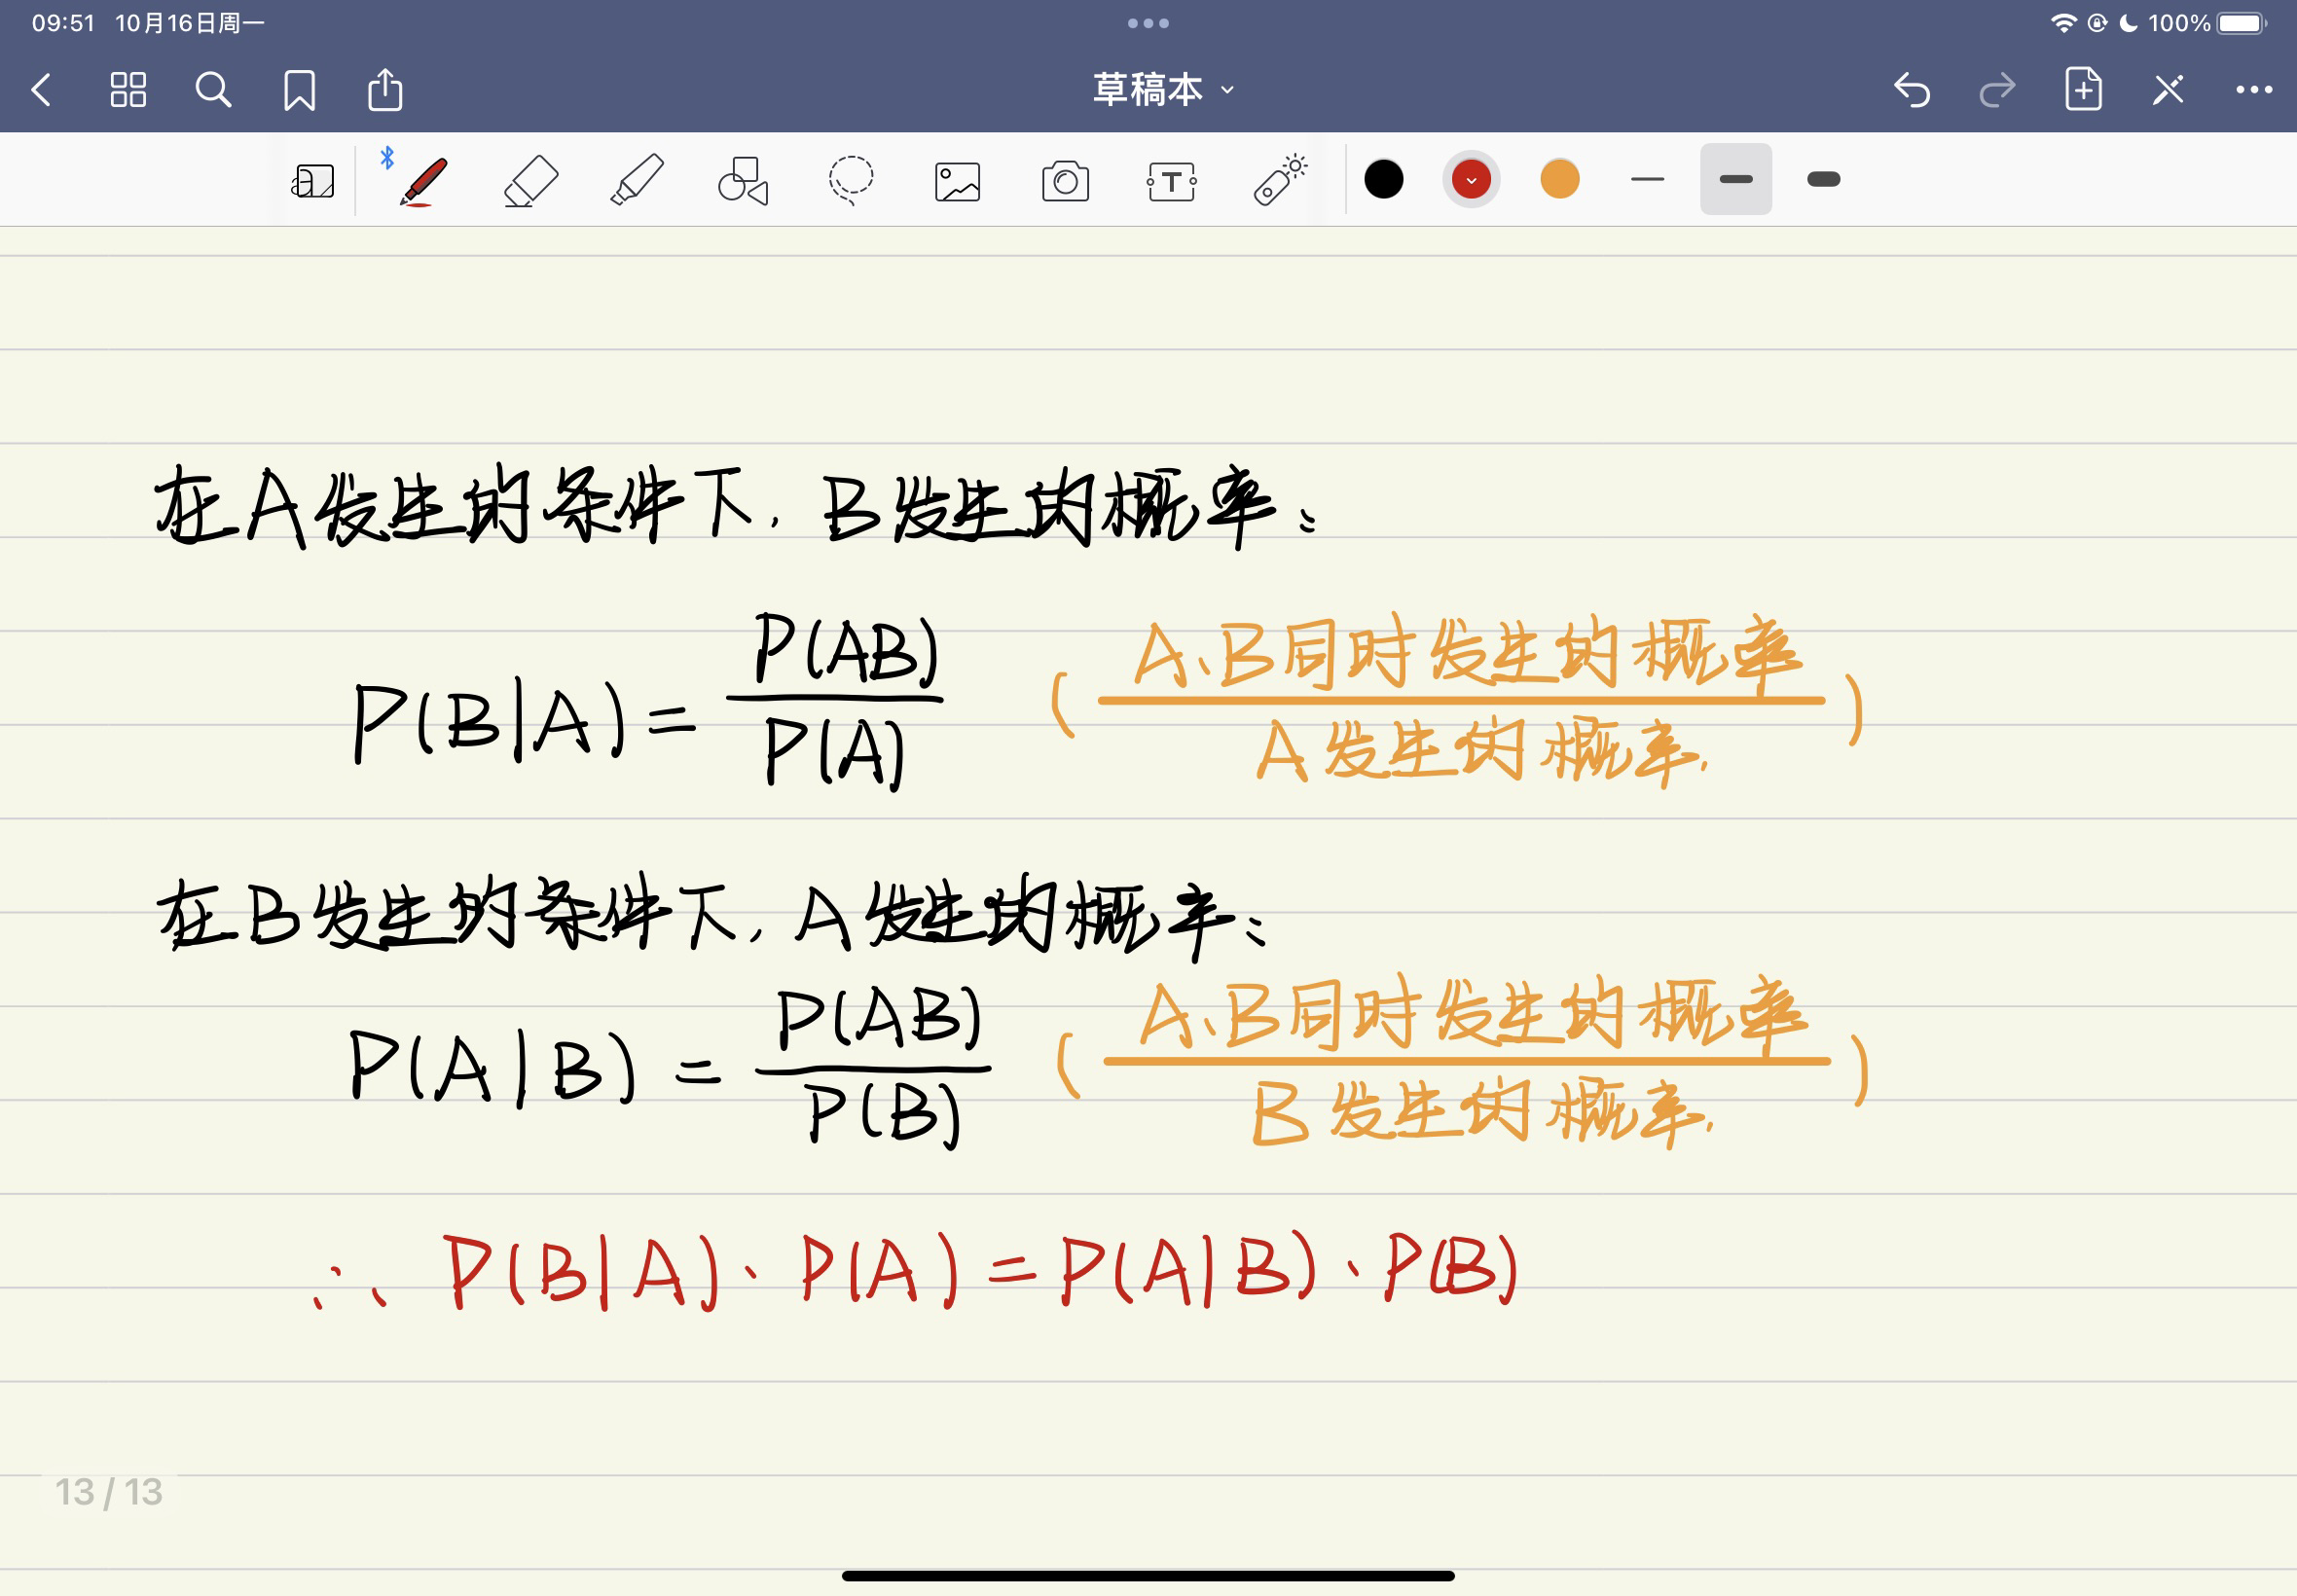 09:51 10月16日周一 100%
草稿本
在A发生的条件下,B发生的概率:
P(B|A)= P(AB) / P(A) ( A、B同时发生的概率 / A发生的概率. )
在B发生的条件下,A发生的概率:
P(A|B) = P(AB) / P(B) ( A、B同时发生的概率 / B发生的概率. )
∴ P(B|A)·P(A)=P(A|B)·P(B)
13/13